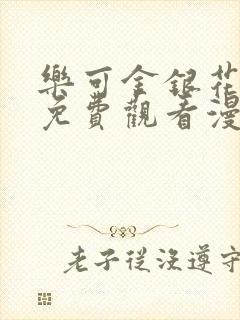 樂可金銀花
免費觀看漫
老子從沒遵守